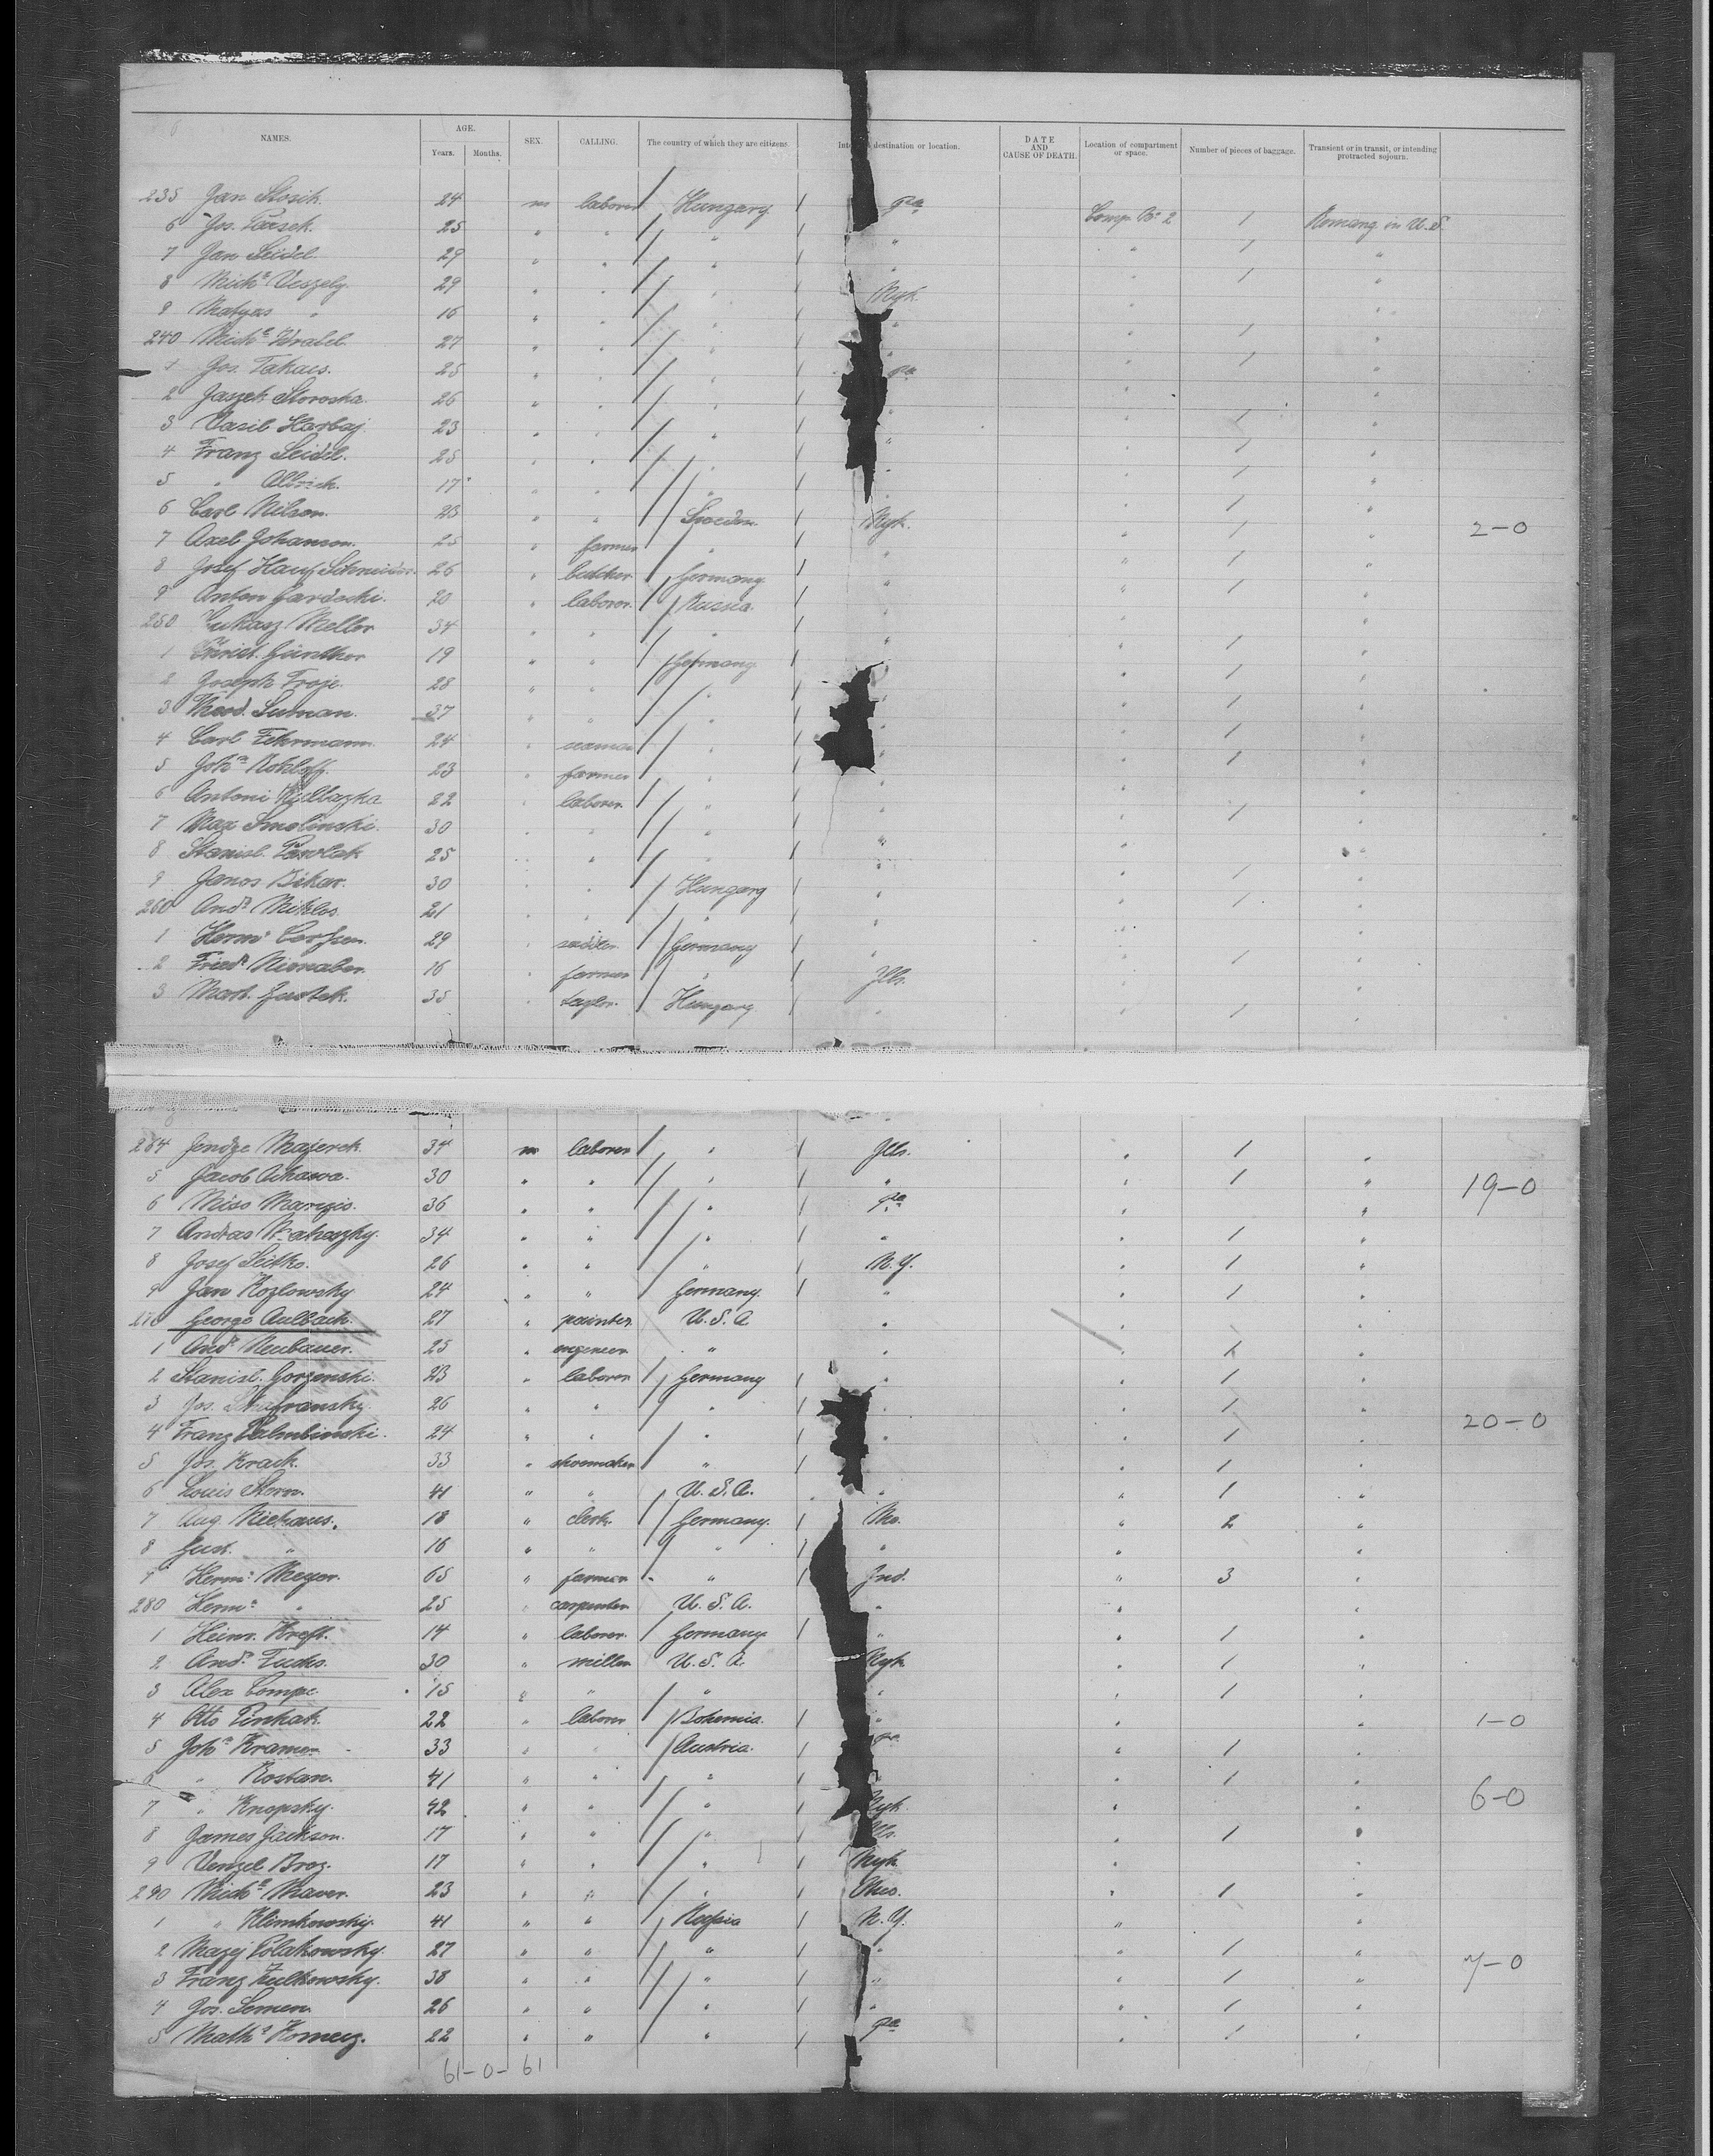 NAMES. AGE. SEX. CALLING. The country of which they are citizens. destination or location. DATE AND CAUSE OF DEATH. Location of compartment or space. Number of pieces of baggage. Transient or in transit, or intending protracted sojourn.
Years. Months.
235 Jan 24 m laborer Hungary Pa Comp. No 2 1 in U.S.
6 Jos. 25 " " " " " 1 "
7 Jan Seidel 29 " " " " " 1 "
8 Micha Veszely 29 " " " Nyk. "
9 Matyas " 16 " " " " " "
240 Micha Wrabel 27 " " " " 1 "
1 Jos. Takacs. 25 " " " Pa " 1 "
2 Jaszek 26 " " " " " "
3 Vasil Harbaj 23 " " " " " 1 "
4 Franz Seidel. 25 " " " " " 1 "
5 " 17 " " " " " 1 "
6 Carl Nilson. 23 " " Sweden Nyk. " 1 " 2-0
7 Axel Johanson. 25 " farmer " " " 1 "
8 Josef Schneider. 26 " butcher Germany " " 1 "
9 Anton 20 " laborer. Russia. " " 1 "
250 Lukasz Meller 34 " " " " " "
1 Christ. Günther 19 " " Germany " " 1 "
2 Joseph Froje. 28 " " " " " 1 "
3 Theod. Suman. 37 " " " " " 1 "
4 Carl Fehrmann. 24 " seaman " " " 1 "
5 Joha Rohloff. 23 " farmer " " " 1 "
6 Antoni 22 " laborer. " " " "
7 Max Smolinski. 30 " " " " " 1 "
8 Stanisl. Pawlak 25 " " " " " "
9 Janos Bihar. 30 " " Hungary " " 1 "
260 Anda Miklos. 21 " " " " " 1 "
1 Herm. 29 " Germany " " "
2 Friedr. Nienaber. 16 " farmer " Ills. " 1 "
3 Mart. 35 " taylor. Hungary " " 1 "
264 Jendze Majerek. 34 m laborer " Ills. " 1 "
5 Jacob 30 " " " " " 1 " 19-0
6 36 " " " Pa " "
7 Andras 34 " " " " " 1 "
8 Josef 26 " " " N.Y. " 1 "
9 Jan Kozlowsky 24 " " Germany. " " 1 "
270 George Aulbach. 27 " painter U.S.A. " " "
1 Anda Neubauer. 25 " engineer " " " 1 "
2 Stanisl. Gorzenski. 23 " laborer Germany " " 1 "
3 Jos. 26 " " " " " 1 "
4 Franz 24 " " " " " 1 " 20-0
5 Jos. Krack. 33 " shoemaker " " 1 "
6 Louis Storm. 41 " " U.S.A. " " 1 "
7 Aug. Niehaus. 18 " clerk. Germany. Mo. " 2 "
8 Gust. " 16 " " " " " "
9 Herma Meyer. 65 " farmer " Ind. " 3 "
280 Herma " 25 " carpenter U.S.A. " " "
1 Heinr. Kreft. 14 " laborer. Germany " " 1 "
2 Anda Fuchs. 30 " miller U.S.A. Nyk " 1 "
3 Alex Compe. 15 " " " " " 1 "
4 Otto 22 " laborer Bohemia. " " " 1-0
5 Joha Kramer 33 " " Austria. Pa " 1 "
6 " Rostan. 41 " " " " 1 "
7 " Knopsky. 42 " " " Nyk. " " 6-0
8 James Jackson. 17 " " " Ills. " 1 "
9 Venzel Broz. 17 " " " Nyk " "
290 Micha Maver. 23 " " " Ohio. " 1 "
1 " Klimkowsky. 41 " " Russia N.Y. " "
2 Mazej Polakowsky. 27 " " " " " 1 "
3 Franz Zulkowsky. 38 " " " " " 1 " 7-0
4 Jos. Semen. 26 " " " " " 1 "
5 Matha 22 " " " Pa " 1 "
61-0-61